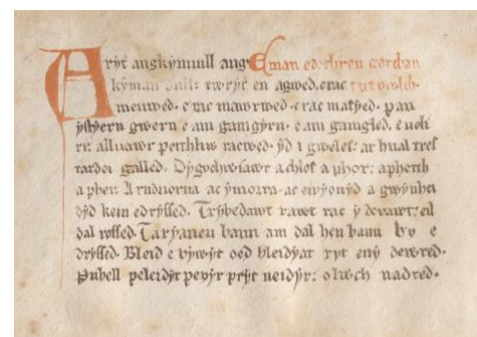 Aryf angkynnull ang Eman e dechreu gorchan
kyman dull: twryf en agwed. e rac tutvwlch.
meuwed. e rac mawrwed. e rac maryed. pan
ystyern gwern e am gamgyrn. e am gamgled. e uoli
ri: alluawr peithliw racwed. yd i gweles. ar hual tres
tardei galled. Dygochwiawr a chlot a phor: a pheith
a pher. A rud uorua ac ymorva. ac eivyonyd a gwynhei
dyd kein edryssed. Trybedawt rawt rac y devawt: eil
dal rossed. Taryaneu bann am dal hen bann bv e
dryssed. Bleid e vywyt oed bleidyat ryt eny dewred.
Pubell peleidyr pevyr pryt neidyr: o lwch nadred.